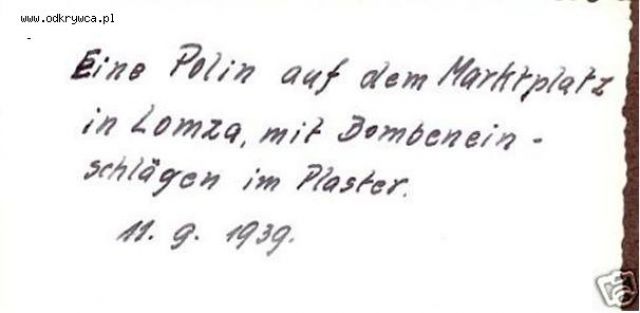 www.odkrywca.pl
Eine Polin auf dem Marktplatz
in Lomza, mit Bombenein-
schlägen im Plaster.
11. 9. 1939.